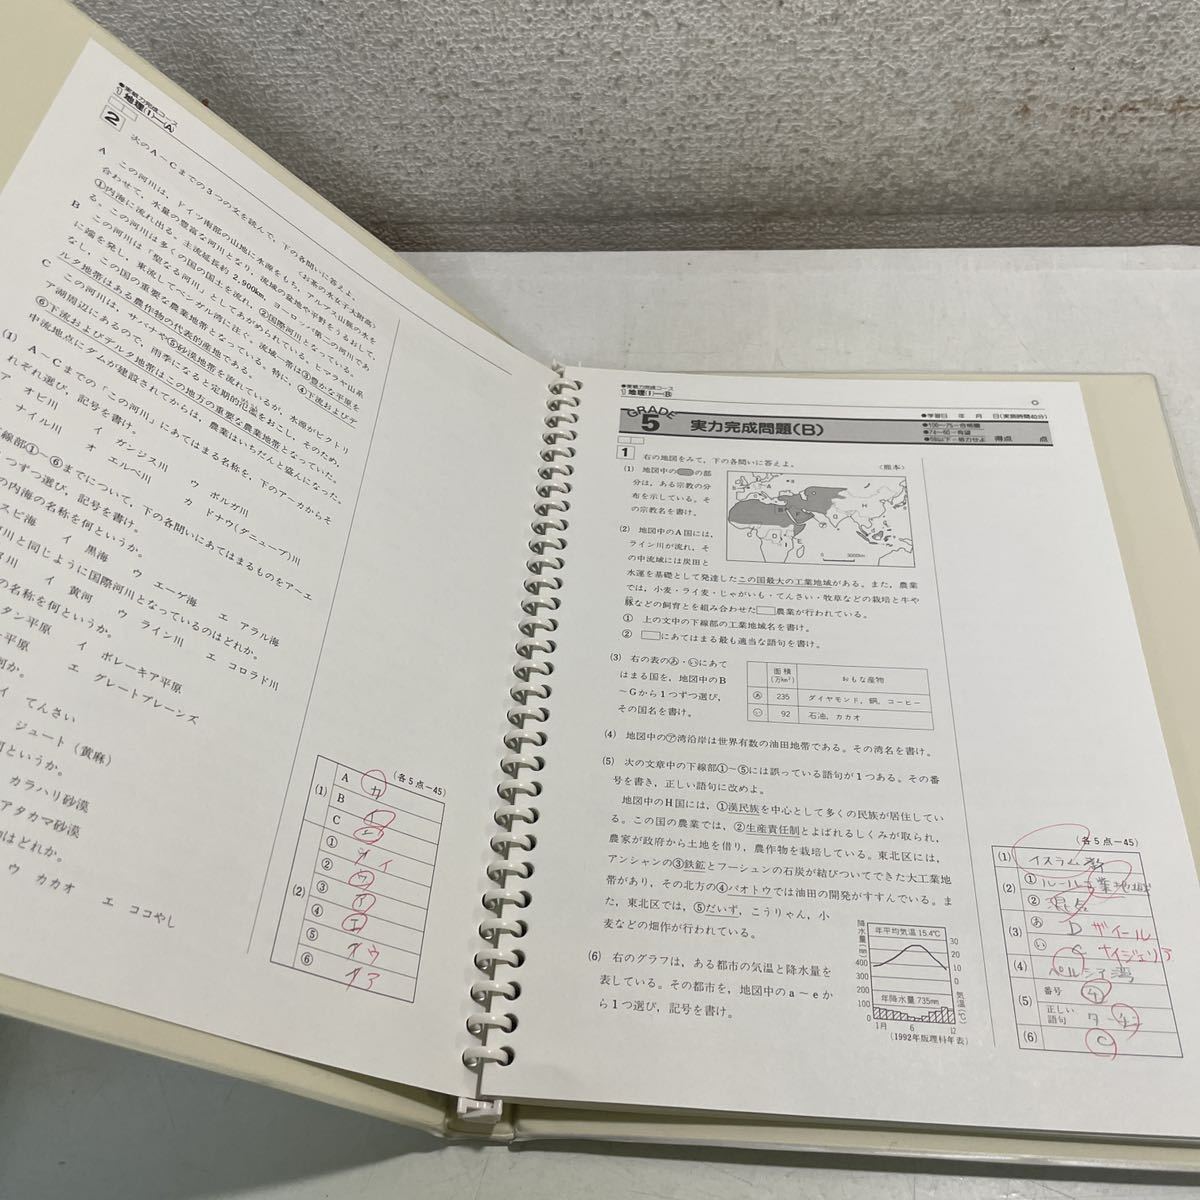 ●実戦力完成コース
① 地理(1)—(A)
2
次のA〜Cまでの3つの文を読んで、下の各問いに答えよ。
〈お茶の水女子大附高〉
A この河川は、ドイツ南部の山地に水源をもち、アルプス山脈の水を
合わせて、水量の豊富な河川となり、流域の盆地や平野をうるおして、
①内海に流れ出る。主流延長約2,900km、ヨーロッパ第二の河川であ
る。この河川は多くの国の国土を流れ、②国際河川となっている。
B この河川は「聖なる河川」としてあがめられている。ヒマラヤ山系
に端を発し、東流してベンガル湾に注ぐ。流域一帯は③豊かな平原を
なし、この国の重要な農業地帯となっている。特に、④下流およびデ
ルタ地帯はある農作物の代表的産地である。
C この河川は、サバナや⑤砂漠地帯を流れているが、水源がビクトリ
ア湖周辺にあるので、雨季になると定期的氾濫をおこし、そのため、
⑥下流およびデルタ地帯はこの地方の重要な農業地帯となっていた。
中流地点にダムが建設されてからは、農業はいちだんと盛んになった。
(1) A〜Cまでの「この河川」にあてはまる名称を、下のア〜カからそ
れぞれ選び、記号を書け。
ア オビ川 イ ガンジス川 ウ ボルガ川
ナイル川 オ エルベ川 カ ドナウ(ダニューブ)川
線部①〜⑥までについて、下の各問いにあてはまるものをア〜エ
つずつ選び、記号を書け。
の内海の名称を何というか。
スピ海 イ 黒海 ウ エーゲ海 エ アラル海
河川と同じように国際河川となっているのはどれか。
イ 黄河 ウ ライン川 エ コロラド川
の名称を何というか。
タン平原 イ ポレーキア平原
平原 エ グレートプレーンズ
何か。
イ てんさい
ジュート(黄麻)
というか。
カラハリ砂漠
アタカマ砂漠
物はどれか。
ウ カカオ
エ ココやし
(各5点—45)
(1) A カ
B イ
C エ
(2) ① イ
② ウ
③ イ
④ エ
⑤ ウ
⑥ ア
●実戦力完成コース
① 地理(1)—(B)
GRADE 5 実力完成問題(B)
●学習日 年 月 日(実施時間40分)
●100〜75—合格圏
●74〜60—有望
●59以下—奮力せよ 得点 点
1
右の地図をみて、下の各問いに答えよ。 〈熊本〉
(1) 地図中の の部
分は、ある宗教の分
布を示している。そ
の宗教名を書け。
(2) 地図中のA国には、
ライン川が流れ、そ
の中流域には炭田と
水運を基礎として発達したこの国最大の工業地域がある。また、農業
では、小麦・ライ麦・じゃがいも・てんさい・牧草などの栽培と牛や
豚などの飼育とを組み合わせた 農業が行われている。
① 上の文中の下線部の工業地域名を書け。
② にあてはまる最も適当な語句を書け。
3000km
(3) 右の表のあ・いにあて
はまる国を、地図中のB
〜Gから1つずつ選び、
その国名を書け。
面積(万km²) おもな産物
あ 235 ダイヤモンド、銅、コーヒー
い 92 石油、カカオ
(4) 地図中の㋐湾沿岸は世界有数の油田地帯である。その湾名を書け。
(5) 次の文章中の下線部①〜⑤には誤っている語句が1つある。その番
号を書き、正しい語句に改めよ。
地図中のH国には、①漢民族を中心として多くの民族が居住してい
る。この国の農業では、②生産責任制とよばれるしくみが取られ、
農家が政府から土地を借り、農作物を栽培している。東北区には、
アンシャンの③鉄鉱とフーシュンの石炭が結びついてできた大工業地
帯があり、その北方の④パオトウでは油田の開発がすすんでいる。ま
た、東北区では、⑤だいず、こうりゃん、小
麦などの畑作が行われている。
(6) 右のグラフは、ある都市の気温と降水量を
表している。その都市を、地図中のa〜eか
ら1つ選び、記号を書け。
降水量(mm)
年平均気温15.4℃
400
300
200
100
0
30
20
10
0
気温(℃)
年降水量735mm
1月 6 12
(1992年版理科年表)
(各5点—45)
(1) イスラム教
(2) ① ルール工業地域
② 混合
(3) あ D ザイール
い G ナイジェリア
(4) ペルシア湾
(5) 番号 4
正しい語句 ターチン
(6) C